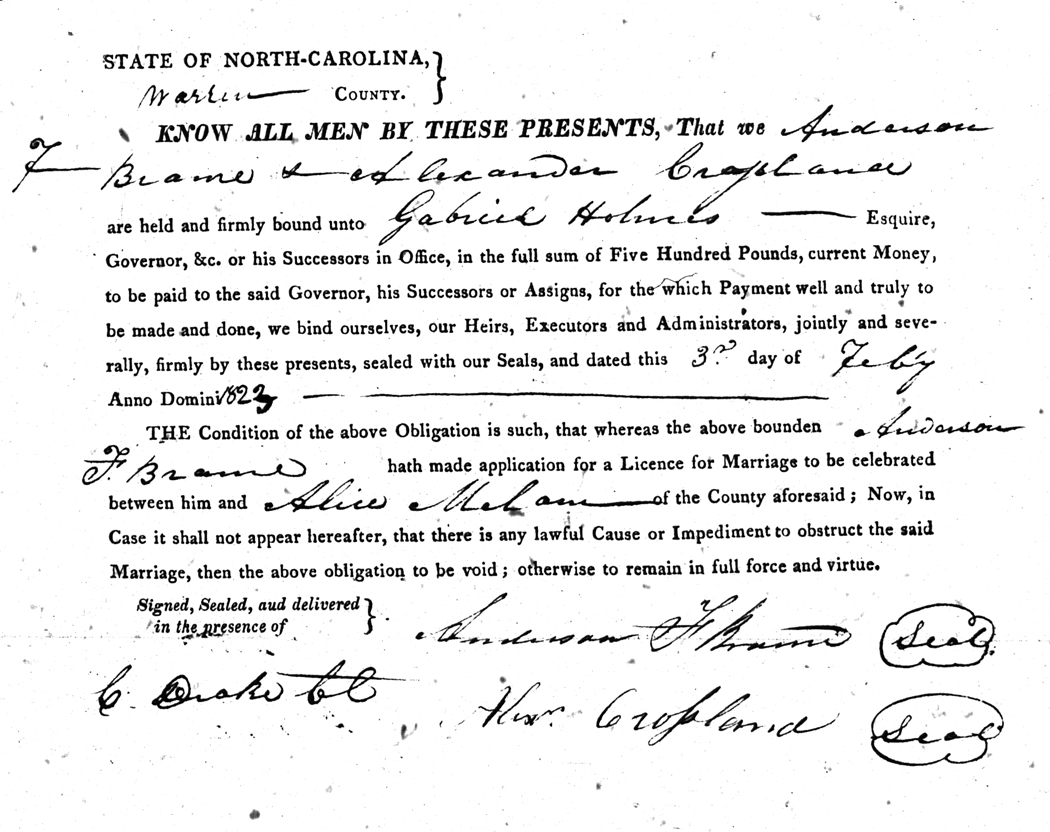 STATE OF NORTH-CAROLINA,
Warren COUNTY.
KNOW ALL MEN BY THESE PRESENTS, That we Anderson
F Brame & Alexander Crossland
are held and firmly bound unto Gabriel Holmes Esquire,
Governor, &c. or his Successors in Office, in the full sum of Five Hundred Pounds, current Money,
to be paid to the said Governor, his Successors or Assigns, for the which Payment well and truly to
be made and done, we bind ourselves, our Heirs, Executors and Administrators, jointly and seve-
rally, firmly by these presents, sealed with our Seals, and dated this 3rd day of Feby
Anno Domini 1823
THE Condition of the above Obligation is such, that whereas the above bounden Anderson
F. Brame hath made application for a Licence for Marriage to be celebrated
between him and Alice Melam of the County aforesaid; Now, in
Case it shall not appear hereafter, that there is any lawful Cause or Impediment to obstruct the said
Marriage, then the above obligation to be void; otherwise to remain in full force and virtue.
Signed, Sealed, aud delivered
in the presence of
Anderson F Brame Seal
C. Drake CC
Alexr. Crossland Seal